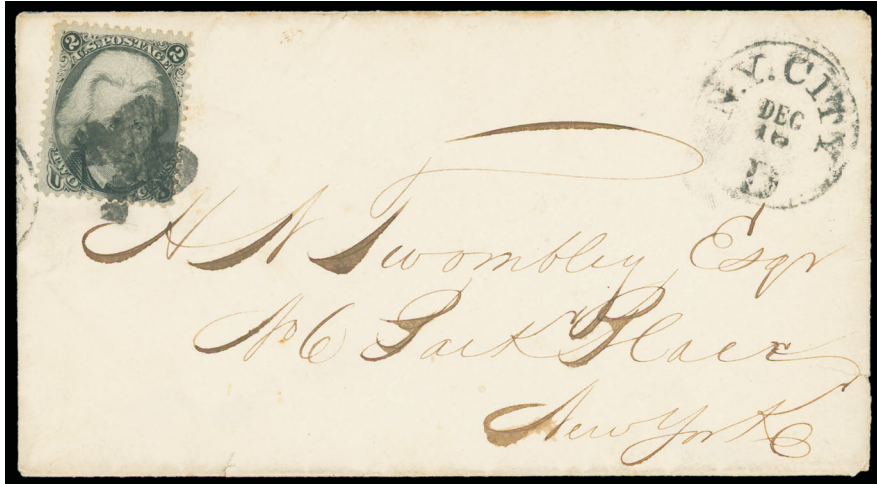 2 U.S. POSTAGE 2
N.Y. CITY
DEC
18
D
H N Twombley Esqr
No 6 Park Place
New York